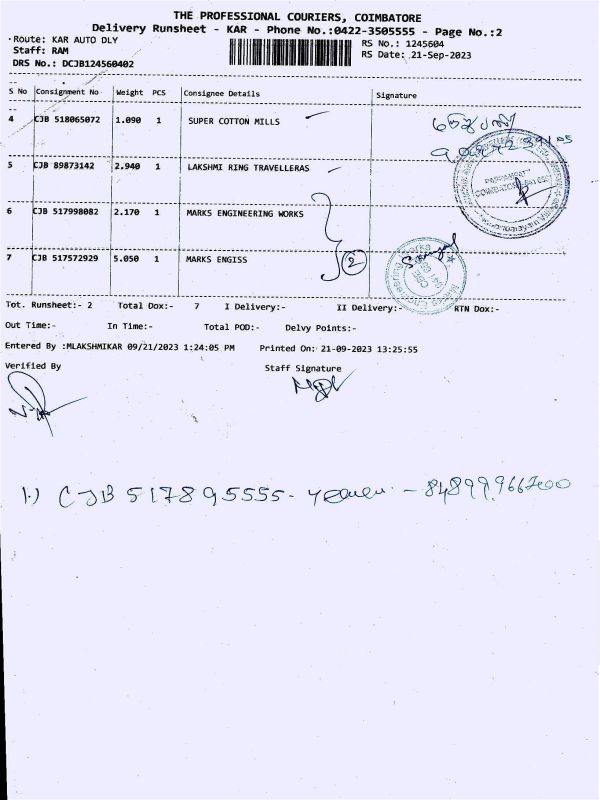 THE PROFESSIONAL COURIERS, COIMBATORE
Delivery Runsheet - KAR - Phone No.:0422-3505555 - Page No.:2
Route: KAR AUTO DLY
RS No.: 1245604
Staff: RAM
RS Date: 21-Sep-2023
DRS No.: DCJB124560402
S No Consignment No Weight PCS Consignee Details Signature
4 CJB 518065072 1.090 1 SUPER COTTON MILLS
5 CJB 89873142 2.940 1 LAKSHMI RING TRAVELLERAS
6 CJB 517998082 2.170 1 MARKS ENGINEERING WORKS
2
7 CJB 517572929 5.050 1 MARKS ENGISS
Tot. Runsheet:- 2 Total Dox:- 7 I Delivery:- II Delivery:- RTN Dox:-
Out Time:- In Time:- Total POD:- Delvy Points:-
Entered By :MLAKSHMIKAR 09/21/2023 1:24:05 PM Printed On: 21-09-2023 13:25:55
Verified By Staff Signature
1.) CJB 517895555-